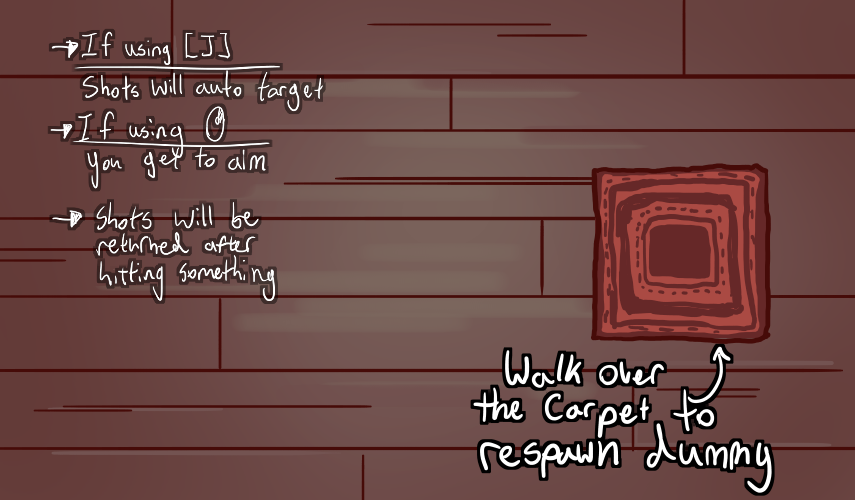 If using [J]
Shots will auto target
If using
you get to aim
Shots will be
returned after
hitting something
Walk over
the Carpet to
respawn dummy